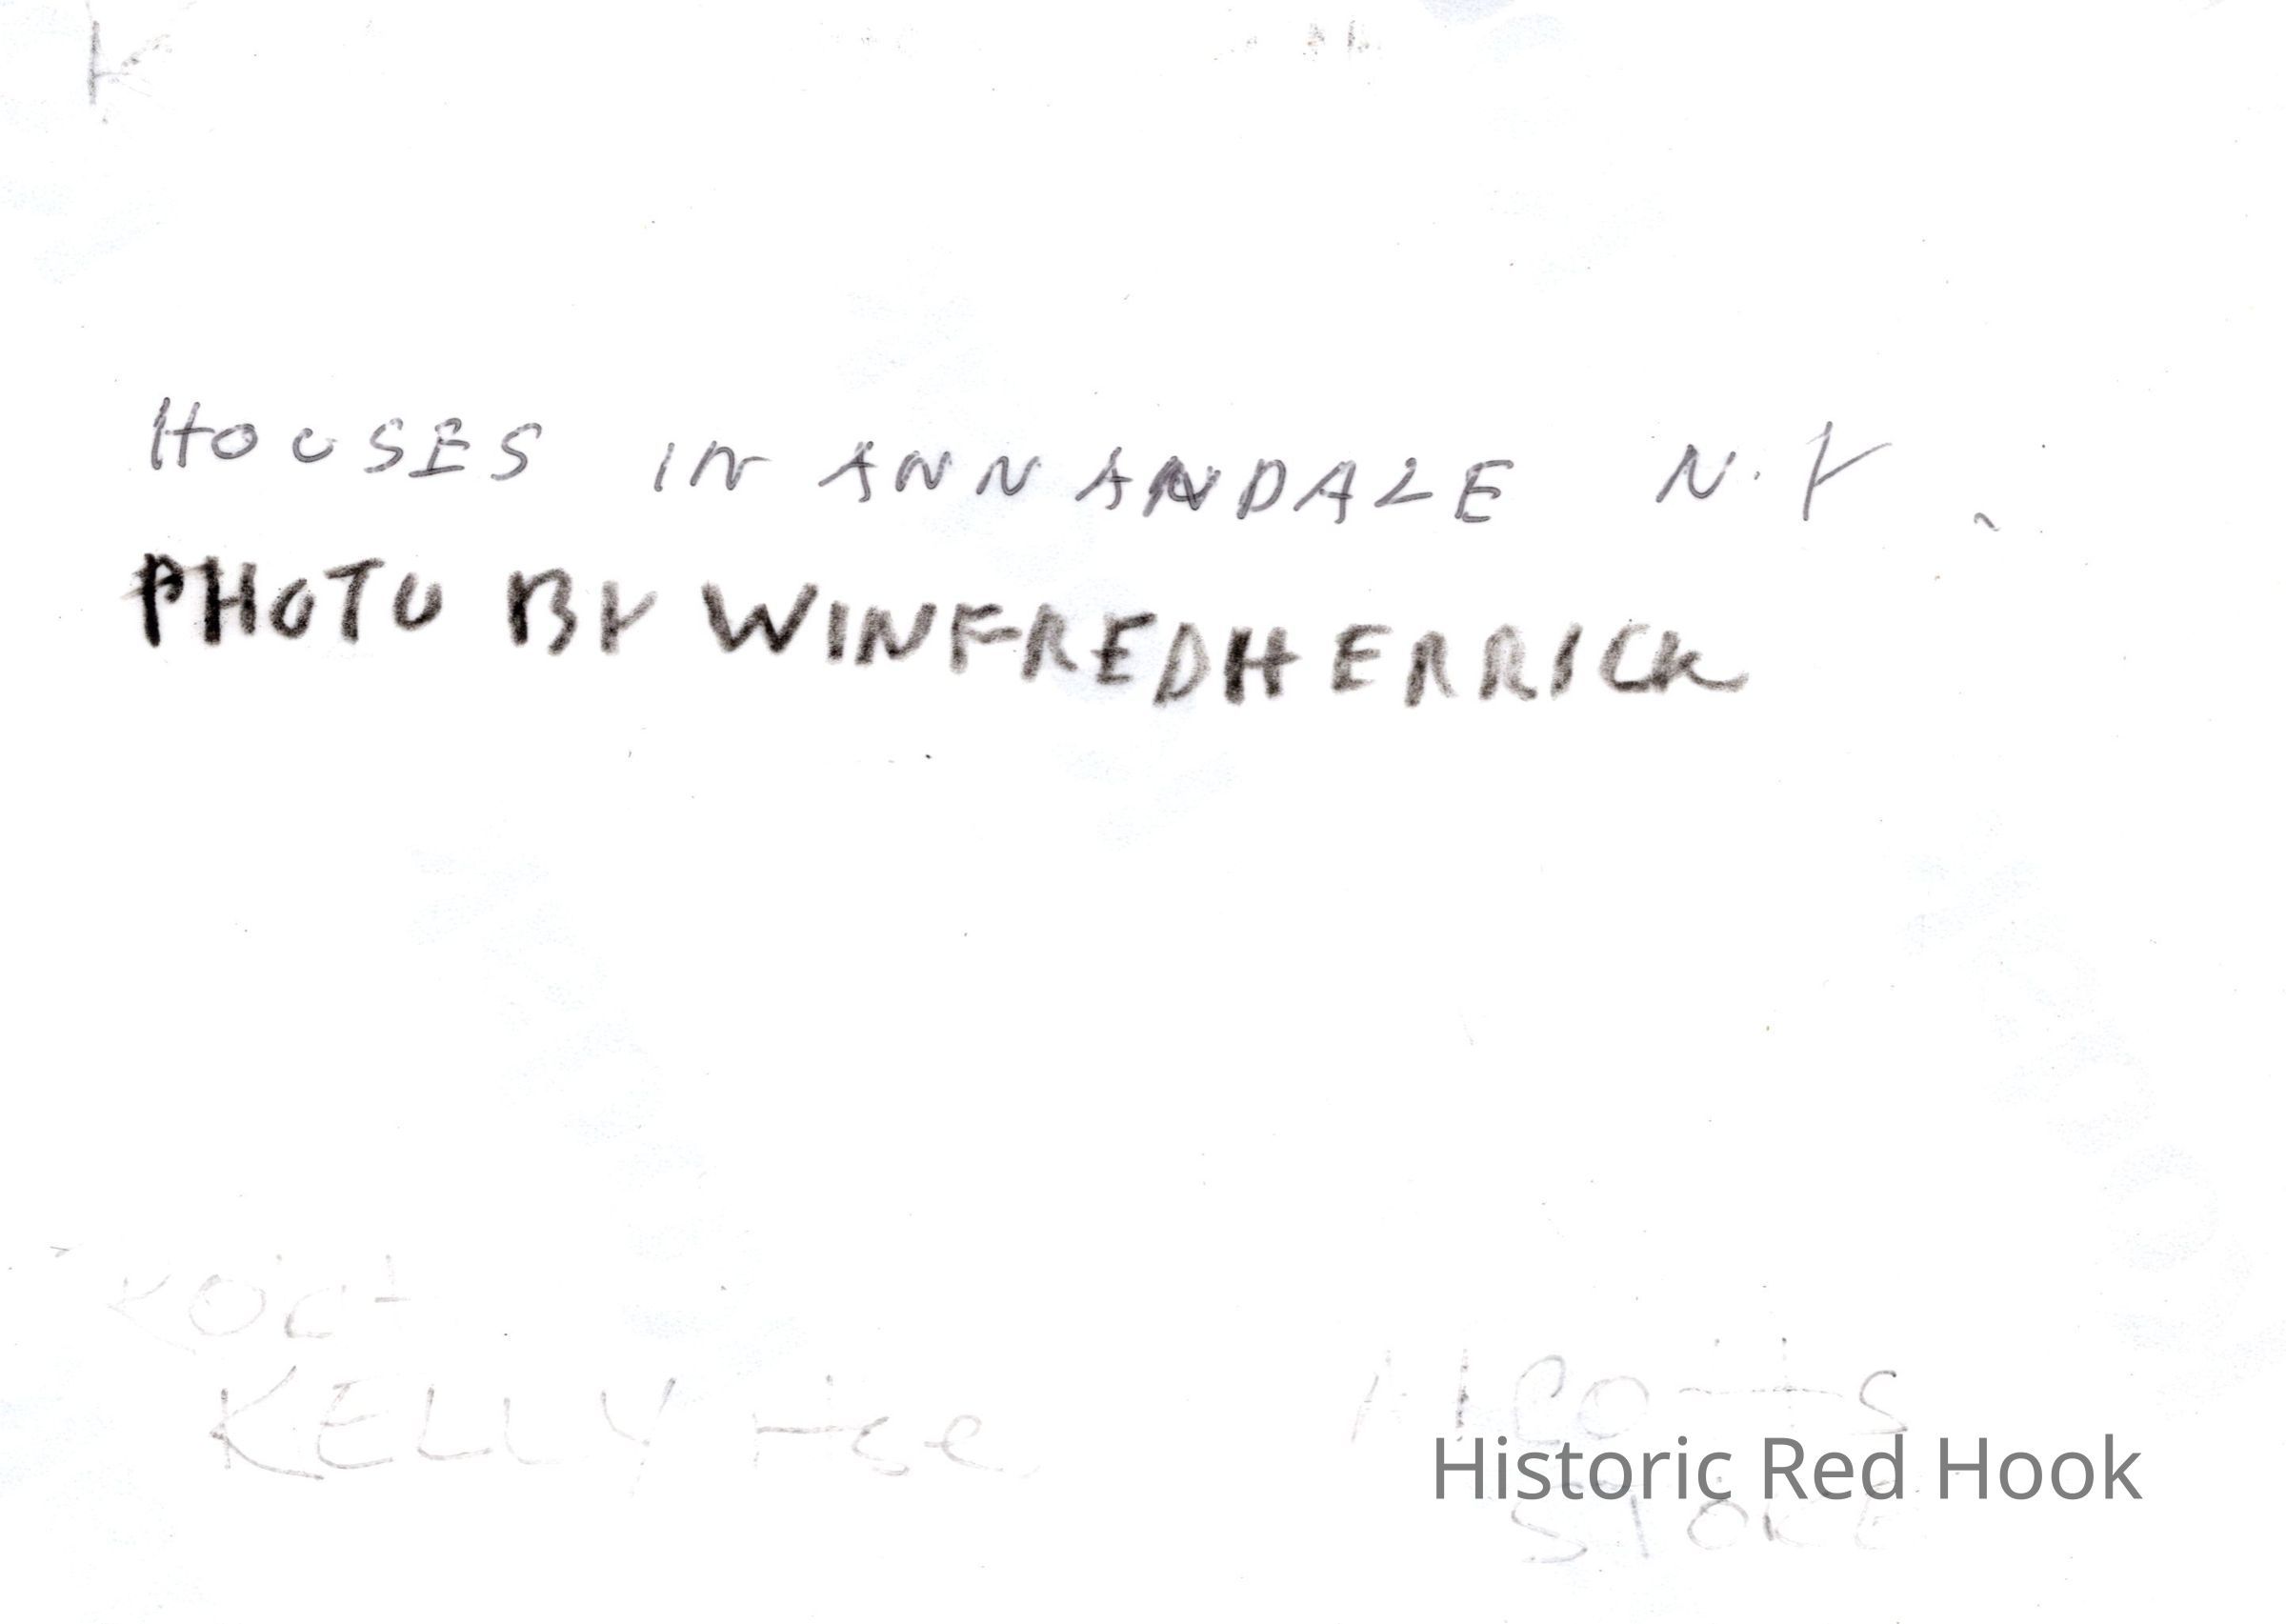 K
HOUSES IN ANNANDALE N.Y.
PHOTO BY WINFRED HERRICK
KELLY Hse.
STORE
Historic Red Hook